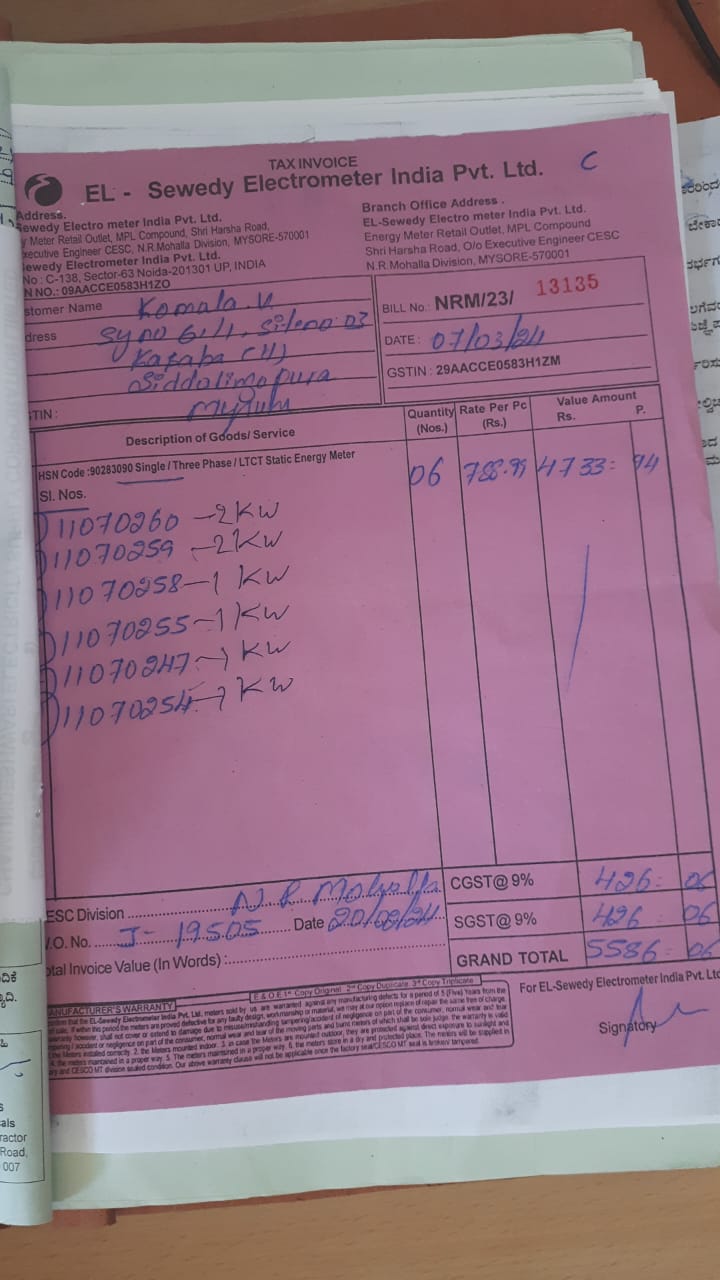 TAX INVOICE
C
EL - Sewedy Electrometer India Pvt. Ltd.
Address.
Sewedy Electro meter India Pvt. Ltd.
Meter Retail Outlet, MPL Compound, Shri Harsha Road,
Executive Engineer CESC, N.R.Mohalla Division, MYSORE-570001
Sewedy Electrometer India Pvt. Ltd.
No : C-138, Sector-63 Noida-201301 UP, INDIA
N NO.: 09AACCE0583H1ZO
Branch Office Address .
EL-Sewedy Electro meter India Pvt. Ltd.
Energy Meter Retail Outlet, MPL Compound
Shri Harsha Road, O/o Executive Engineer CESC
N.R.Mohalla Division, MYSORE-570001
stomer Name Komala. V
dress Sy no 61/1, Site no 03
Kasaba (H)
Siddalingapura
TIN : Mysuru
BILL No.: NRM/23/ 13135
DATE : 07/03/24
GSTIN : 29AACCE0583H1ZM
Description of Goods/ Service
Quantity (Nos.)
Rate Per Pc (Rs.)
Value Amount
Rs. P.
HSN Code :90283090 Single / Three Phase / LTCT Static Energy Meter
06 788.99 4733: 94
Sl. Nos.
11070260 - 2 KW
11070259 - 2 KW
11070258 - 1 KW
11070255 - 1 KW
11070247 - 1 KW
11070254 - 1 KW
ESC Division N R Mohalla
.O. No. J- 19505 Date 20/02/24
tal Invoice Value (In Words) :
CGST@ 9% 426: 06
SGST@ 9% 426: 06
GRAND TOTAL 5586: 06
E & O E 1st Copy Original 2nd Copy Duplicate 3rd Copy Triplicate
For EL-Sewedy Electrometer India Pvt. Ltd
Signatory
MANUFACTURER'S WARRANTY
als
ractor
Road,
007